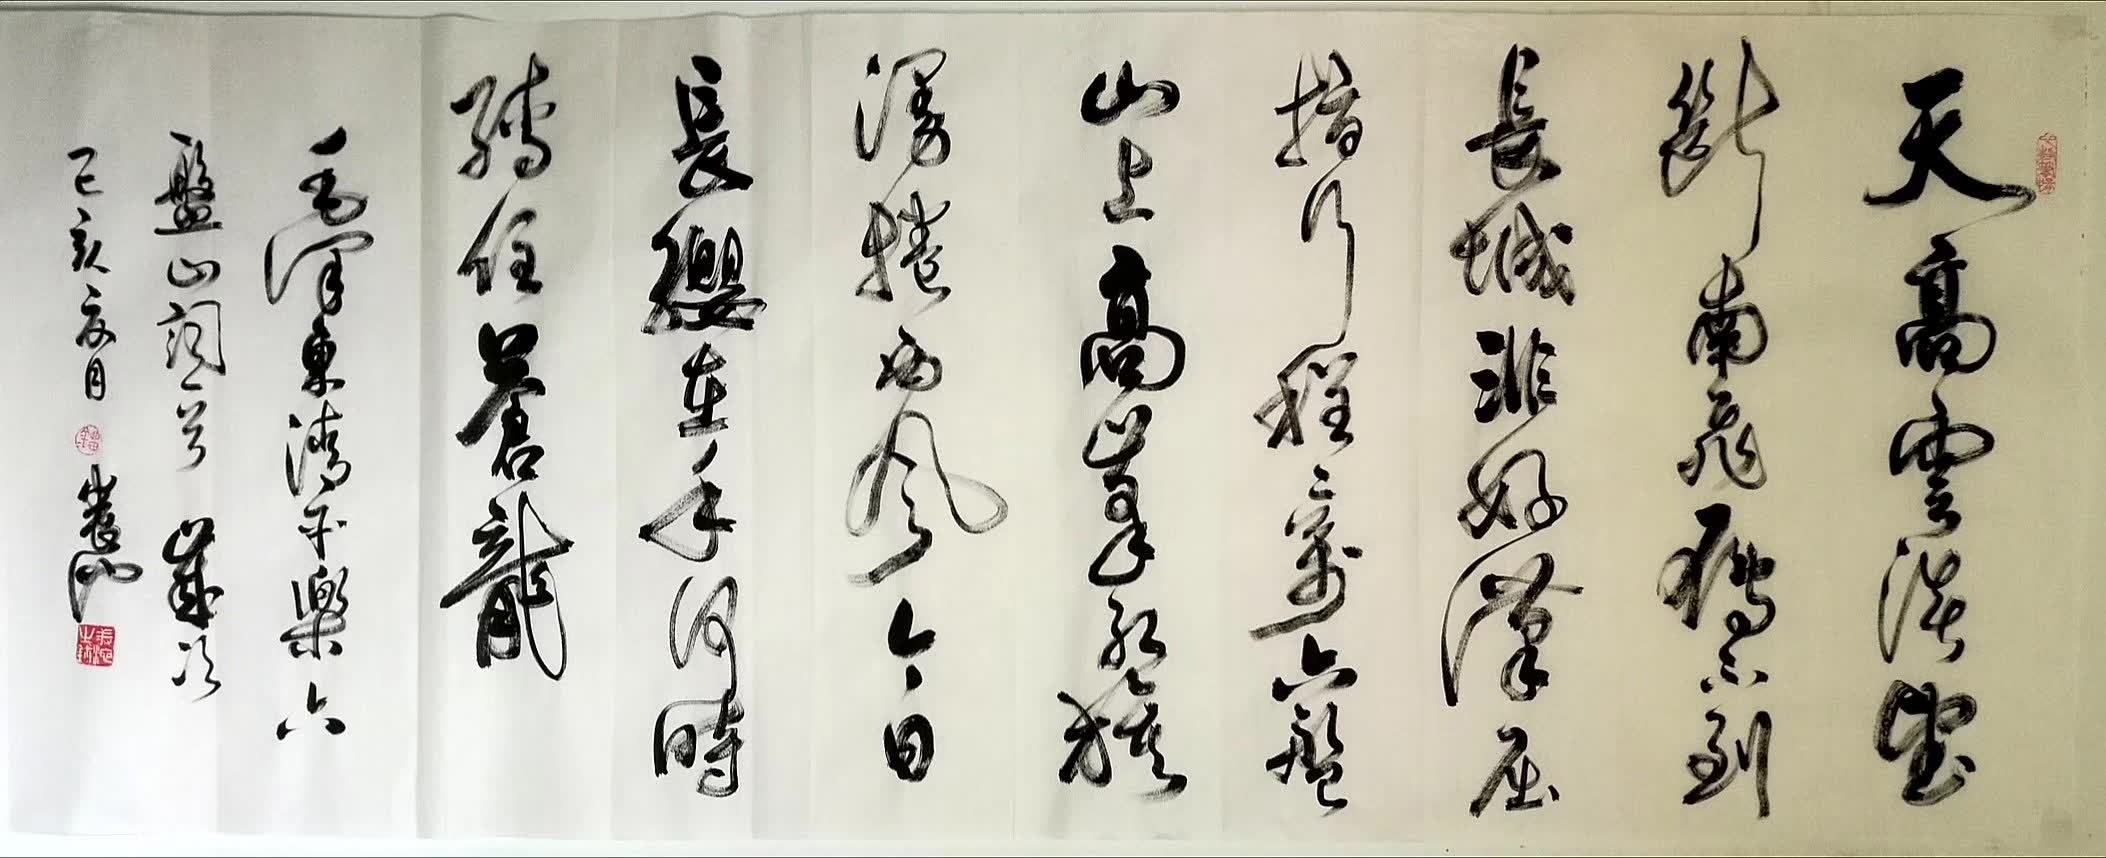 天高雲淡望
斷南飛雁不到
長城非好漢屈
指行程二萬六盤
山上高峰紅旗
漫捲西風今日
長纓在手何時
縛住蒼龍
毛澤東清平樂六
盤山詞一首 歲次
己亥夏月